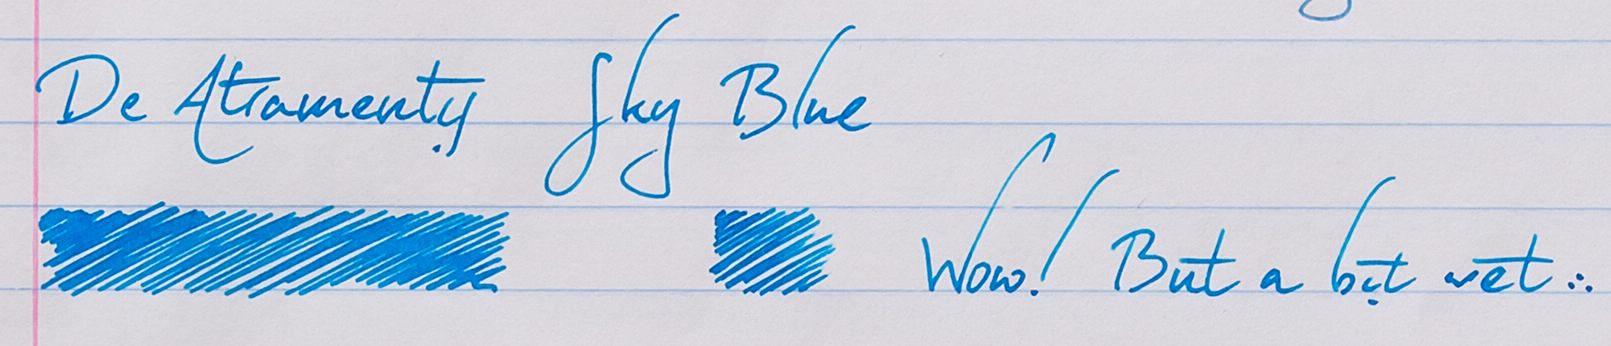 De Atramentis Sky Blue
Wow! But a bit wet...